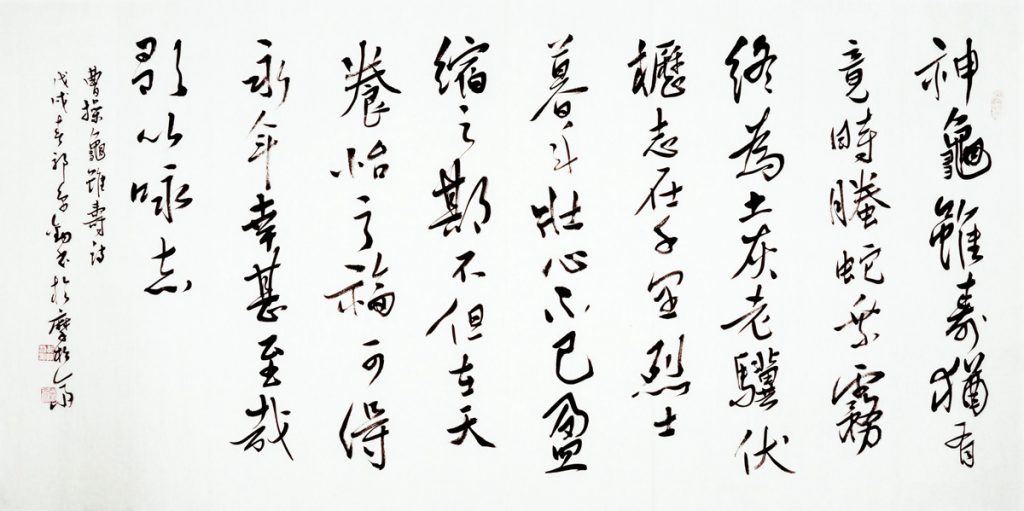 神龜雖壽猶有
竟時螣蛇乘霧
終為土灰老驥伏
櫪志在千里烈士
暮年壯心不已盈
縮之期不但在天
養怡之福可得
永年幸甚至哉
歌以咏志
曹操龜雖壽詩
戊戌春祁書於摩松